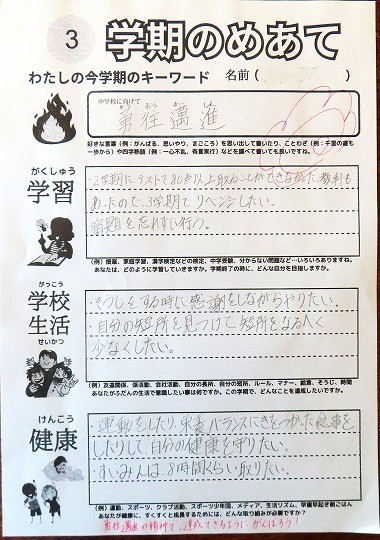 3 学期のめあて
わたしの今学期のキーワード 名前( )
中学校に向けて
ゆう おう まい しん
勇往邁進
好きな言葉（例：がんばる、思いやり、まごころ）を思い出して書いたり、ことわざ（例：千里の道も
一歩から）や四字熟語（例：一心不乱、有言実行）などを調べて書いても良いですね。
がくしゅう
学習
・2学期にテストで80点以上取ることができなかった教科も
あったので、3学期でリベンジしたい。
宿題を忘れずい行う。
（例）授業、家庭学習、漢字検定などの検定、中学受験、分からない問題など…いろいろありますね。
あなたは、どのように学習していきますか。学期終了の時に、どんな自分を目指しますか。
がっこう
学校
生活
せいかつ
・そうじをする時に感謝をしながらやりたい。
・自分の短所を見つけて、短所をなるべく
少なくしたい。
（例）友達関係、係活動、会社活動、自分の長所、自分の短所、ルール、マナー、給食、そうじ、時間
あなたがふだんの生活で意識したい事は何ですか。この学期で、どんなことを達成したいですか。
けんこう
健康
・運動をしたり、栄養バランスにきをつかった食事を
したりして、自分の健康を守りたい。
・すいみんは、8時間くらい取りたい。
（例）運動、スポーツ、クラブ活動、スポーツ少年団、メディア、生活リズム、早寝早起き朝ごはん
あなたが健康に、すくすくと成長するためには、どんな取り組みが必要ですか？
勇往邁進の精神で、達成できるようにがんばろう！